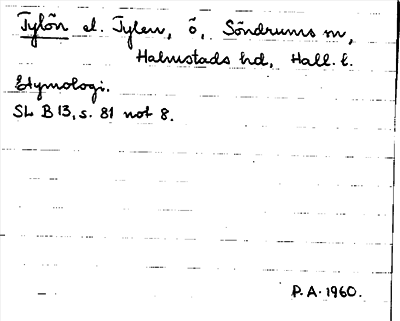 Tylön el. Tylen, ö, Söndrums sn,
Halmstads hd, Hall. l.
Etymologi.
SL B 13, s. 81 not 8.
P.A. 1960.